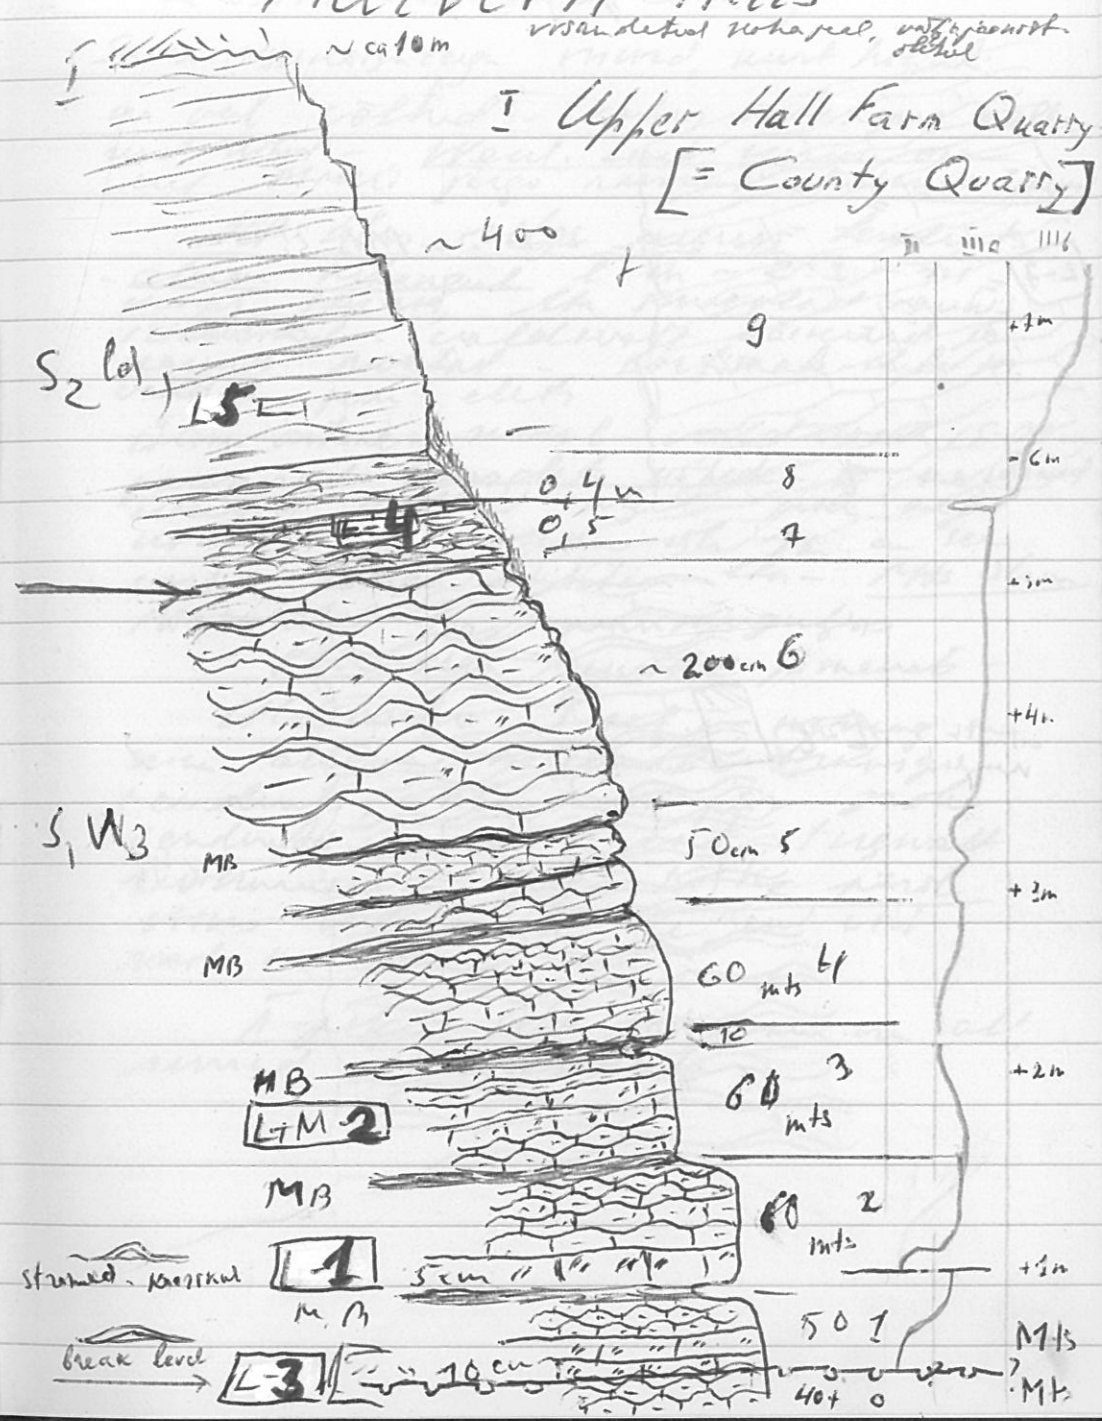 Malvern Hills
~ca 10m
I Upper Hall Farm Quarry
[= County Quarry]
~400
II IIIa IIIb
9
+7m
S2 ld1
L5
6m
8
0,4m
L-4
0,5
7
+5m
~200cm 6
+4m
S1 W3
MB
50cm 5
+3m
MB
60 mts 4
10
MB
60 mts 3
+2m
L+M-2
MB
60 mts 2
L-1
5cm
+1m
M,B
50 1
Mts
break level
L-3
10 cm
?
40+ 0
Mts